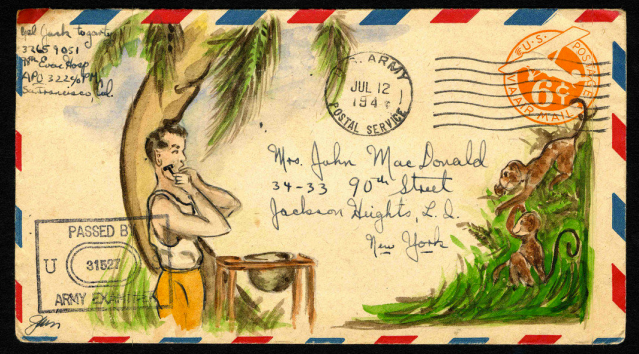 Jack Fogarty
32659051
Evac Hosp
APO 322 % PM
San Francisco, Cal.
U.S. ARMY
JUL 12
194
POSTAL SERVICE
U.S. POSTAGE
6¢
VIA AIR MAIL
Mrs. John MacDonald
34-33 90th Street
Jackson Heights, L.I.
New York
PASSED BY
U
31527
ARMY EXAMINER